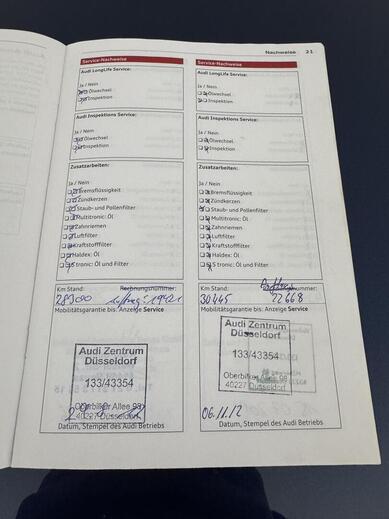 Nachweise 21
Service-Nachweise
Audi LongLife Service:
Ja / Nein
Ölwechsel
Inspektion
Audi Inspektions Service:
Ja / Nein
Ölwechsel
Inspektion
Zusatzarbeiten:
Ja / Nein
Bremsflüssigkeit
Zündkerzen
Staub- und Pollenfilter
Multitronic: Öl
Zahnriemen
Luftfilter
Kraftstofffilter
Haldex: Öl
S tronic: Öl und Filter
Km Stand: Rechnungsnummer:
Mobilitätsgarantie bis: Anzeige Service
Audi Zentrum
Düsseldorf
133/43354
Oberbilker Allee 98
40227 Düsseldorf
Datum, Stempel des Audi Betriebs
Service-Nachweise
Audi LongLife Service:
Ja / Nein
Ölwechsel
Inspektion
Audi Inspektions Service:
Ja / Nein
Ölwechsel
Inspektion
Zusatzarbeiten:
Ja / Nein
Bremsflüssigkeit
Zündkerzen
Staub- und Pollenfilter
Multitronic: Öl
Zahnriemen
Luftfilter
Kraftstofffilter
Haldex: Öl
S tronic: Öl und Filter
Km Stand:
30445 22668
Mobilitätsgarantie bis: Anzeige Service
Audi Zentrum
Düsseldorf
133/43354
Oberbilker Allee 98
40227 Düsseldorf
06.11.12
Datum, Stempel des Audi Betriebs